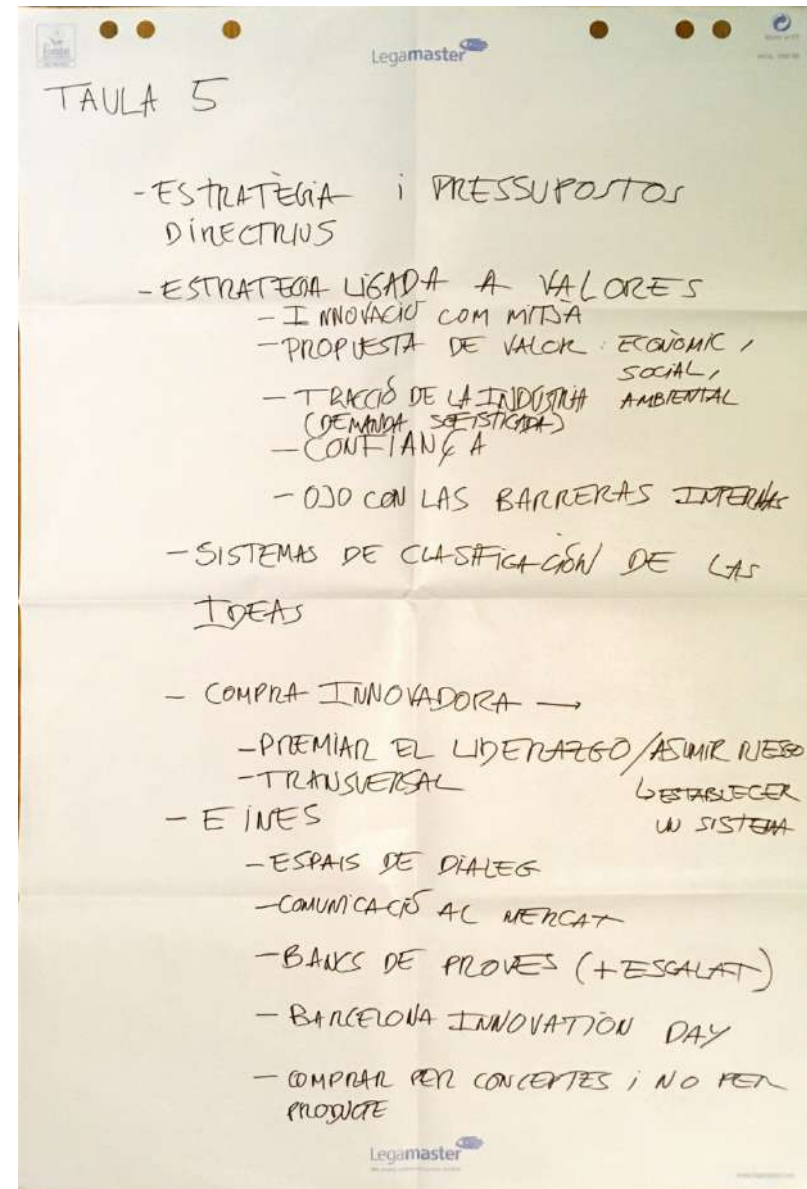 Legamaster
TAULA 5
- ESTRATÈGIA i PRESSUPOSTOS
DIRECTRIUS
- ESTRATEGIA LIGADA A VALORES
- INNOVACIÓ COM MITJÀ
- PROPUESTA DE VALOR: ECONÒMIC,
SOCIAL,
AMBIENTAL
- TRACCIÓ DE LA INDÚSTRIA
(DEMANDA SOFISTICADA)
- CONFIANÇA
- OJO CON LAS BARRERAS INTERNAS
- SISTEMAS DE CLASIFICACIÓN DE LAS
IDEAS
- COMPRA INNOVADORA →
- PREMIAR EL LIDERAZGO/ASUMIR RIESGO
↳ ESTABLECER
UN SISTEMA
- TRANSVERSAL
- EINES
- ESPAIS DE DIALEG
- COMUNICACIÓ AL MERCAT
- BANCS DE PROVES (+ ESCALAT)
- BARCELONA INNOVATION DAY
- COMPRAR PER CONCEPTES i NO PER
PRODUCTE
Legamaster